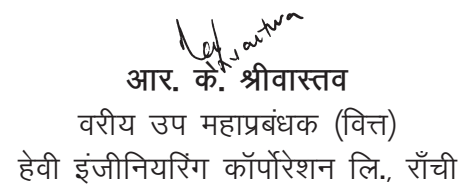 आर. के. श्रीवास्तव
वरीय उप महाप्रबंधक (वित्त)
हेवी इंजीनियरिंग कॉर्पोरेशन लि., राँची